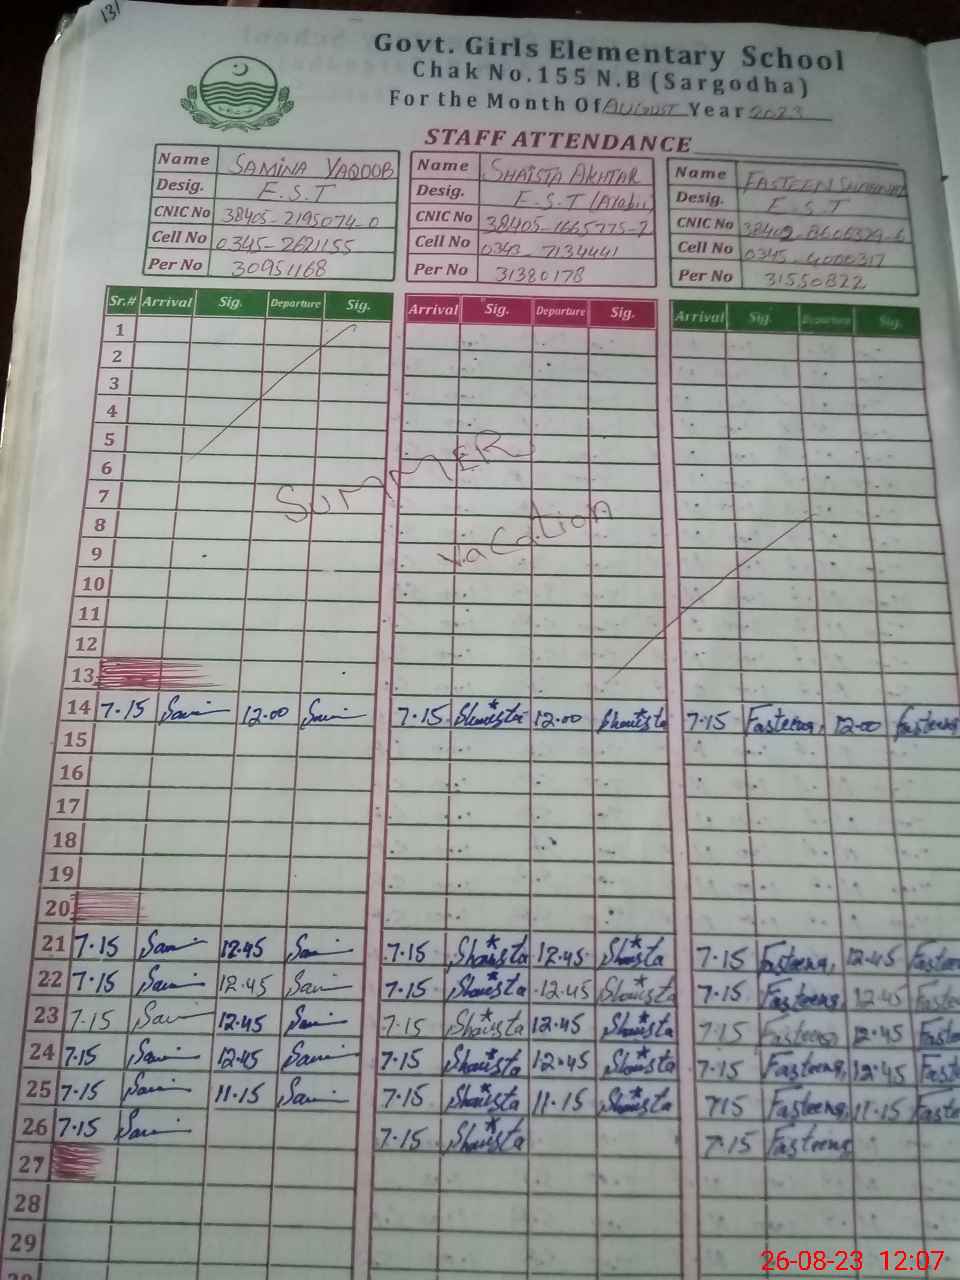 131
Govt. Girls Elementary School
Chak No.155 N.B (Sargodha)
For the Month Of AUGUST Year 2023
STAFF ATTENDANCE
Name SAMINA YAQOOB Name SHAISTA AKHTAR Name
Desig. E.S.T Desig. E.S.T (Arabic) Desig. E.S.T
CNIC No 38405-2195074-0 CNIC No 38405-1665775-2 CNIC No
Cell No 0345-2621155 Cell No 0343-7134441 Cell No 0345-4000317
Per No 30951168 Per No 31380178 Per No 31550822
Sr.# Arrival Sig. Departure Sig. Arrival Sig. Departure Sig. Arrival Sig. Departure Sig.
1
2
3
4
5
6
SUMMER
7
8
vacation
9
10
11
12
13
14 7.15 Sami 12.00 Sami 7.15 Shaista 12.00 Shaista 7.15 Fasteena 12.00 Fasteena
15
16
17
18
19
20
21 7.15 Sami 12.45 Sami 7.15 Shaista 12.45 Shaista 7.15 Fasteena 12.45 Fasteen
22 7.15 Sami 12.45 Sami 7.15 Shaista 12.45 Shaista 7.15 Fasteena 12.45 Fastee
23 7.15 Sami 12.45 Sami 7.15 Shaista 12.45 Shaista 7.15 Fasteena 12.45 Faste
24 7.15 Sami 12.45 Sami 7.15 Shaista 12.45 Shaista 7.15 Fasteena 12.45 Faste
25 7.15 Sami 11.15 Sami 7.15 Shaista 11.15 Shaista 7.15 Fasteena 11.15 Faste
26 7.15 Sami 7.15 Shaista 7.15 Fasteena
27
28
29
26-08-23 12:07